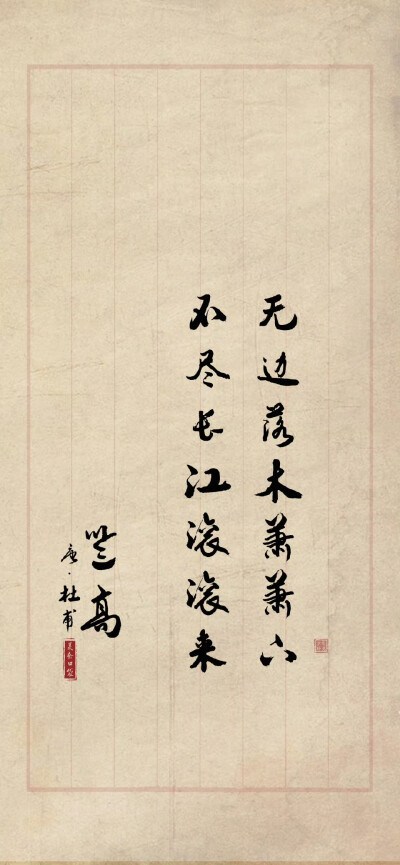 无边落木萧萧下
不尽长江滚滚来
登高
唐·杜甫